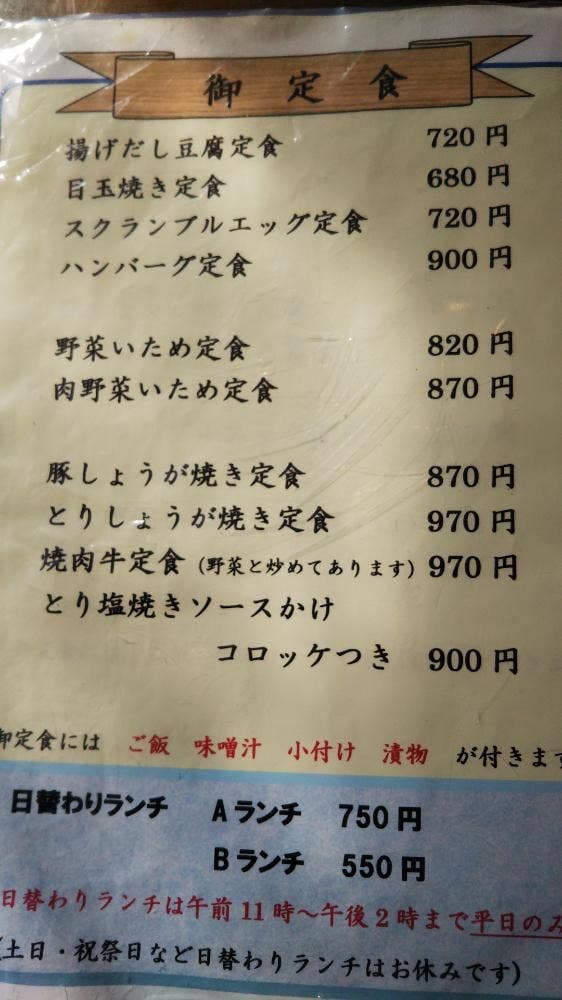 御定食
揚げだし豆腐定食 720 円
目玉焼き定食 680 円
スクランブルエッグ定食 720 円
ハンバーグ定食 900 円
野菜いため定食 820 円
肉野菜いため定食 870 円
豚しょうが焼き定食 870 円
とりしょうが焼き定食 970 円
焼肉牛定食 (野菜と炒めてあります) 970 円
とり塩焼きソースかけ
コロッケつき 900 円
御定食には ご飯 味噌汁 小付け 漬物 が付きます
日替わりランチ Aランチ 750 円
Bランチ 550 円
日替わりランチは午前11時～午後2時まで平日のみ
(土日・祝祭日など日替わりランチはお休みです)